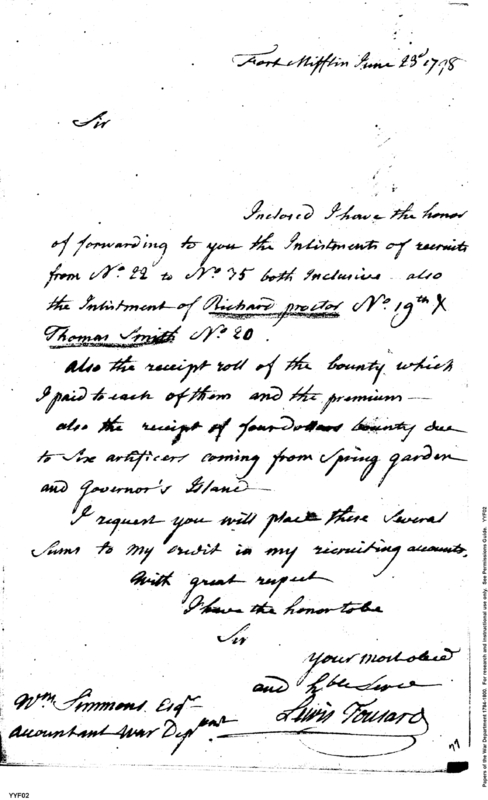 Fort Mifflin June 23d 1798
Sir
Inclosed I have the honor
of forwarding to you the Inlistments of recruits
from No. 22 to No. 35 both Inclusive also
the Inlistment of Richard proctor No. 19th &
Thomas Smith No 20.
also the receipt roll of the bounty which
I paid to each of them and the premium—
also the receipt of four Dollars bounty due
to Six artificers coming from Spring garden
and Governor's Island
I request you will place these Several
Sums to my credit in my recruiting accounts.
With great respect
I have the honor to be
Sir
your most obed
and hble Serv
Lewis Tousard
Wm Simmons Esqr
accountant War Depment
YYF02
Papers of the War Department 1784-1800. For research and instructional use only. See Permissions Guide. YYF02